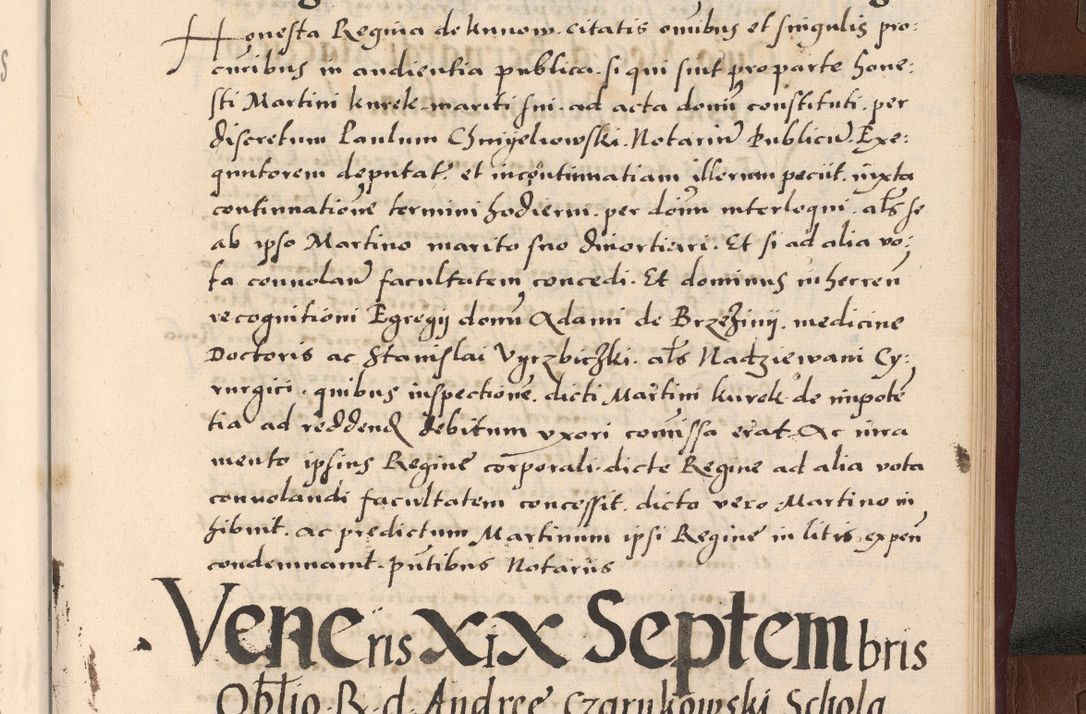 Honesta Regina de knnow. citatis omībus et singulis pro:
curibus in audientia publica. si qui sint pro parte hone:
sti Martini kurek mariti sui. ad acta domū constituti. per
discretum Paulum Chmyeliowski. Notariū Publicū. Exe:
quutorem deputat. et in cōtumatiam illorum peciit. iuxta
continuatione termini hodierni. per dōm interloqui. als se
ab ipso Martino marito suo diuortiari. Et si ad alia vo:
ta conuolau facultatem concedi. Et dominus inherren
recognitioni Egregij domī Adami de Brzeziny. medicine
Doctoris ac Stanislai Vyrzbiczki. als Nadziewani Cy:
rurgici. quibus inspectione. dicti Martini kurek de impotē
tia ad reddend debitum vxori comissa erat. Ac iura
mento ipsius Regine corporali. dicte Regine ad alia vota
conuolandi facultatem concessit. dicto vero Martino in
hibuit. ac predictum Martinum ipsi Regine in litis expen
condemnauit. pntibus Notariis
Veneris xix Septembris
Oblio R. d. Andree Czarnkowski Schola